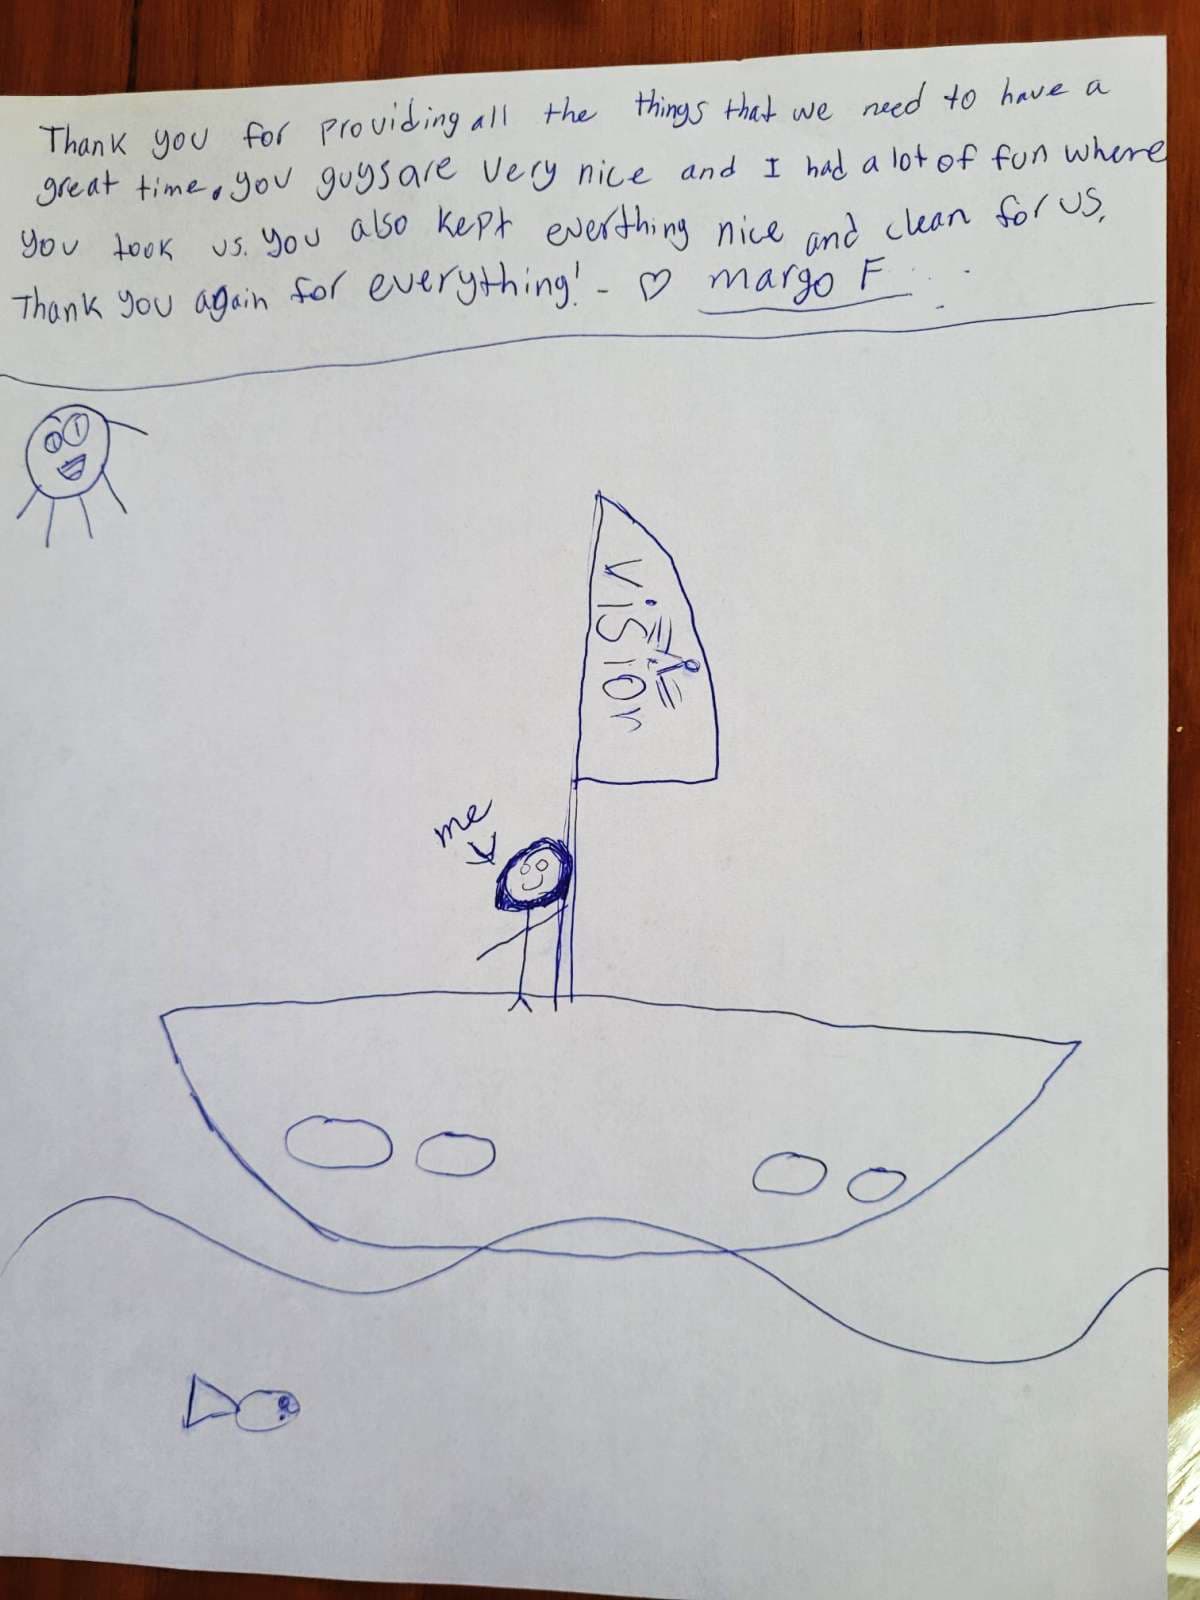 Thank you for providing all the things that we need to have a
great time. you guys are very nice and I had a lot of fun where
you took us. you also kept everthing nice and clean for us.
Thank you again for everything! - ♡ margo F
vision
me